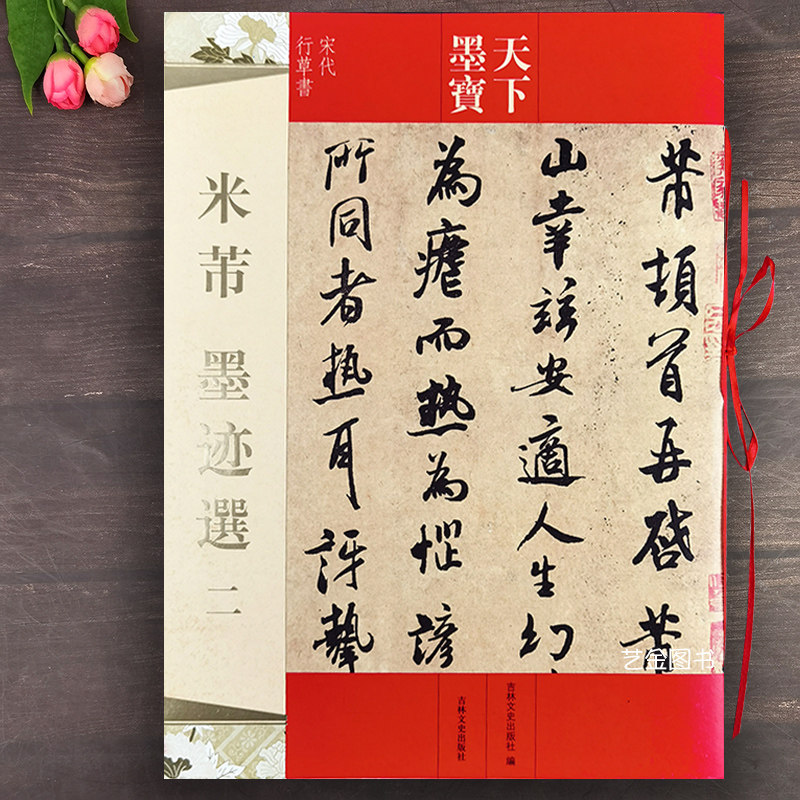 天下
墨寶
宋代
行草書
米芾 墨迹選 二
芾頓首再啓芾
山幸兹安適人生幻
為瘧而熱為惱諺
所同者熱耳訝摯
吉林文史出版社 編
吉林文史出版社